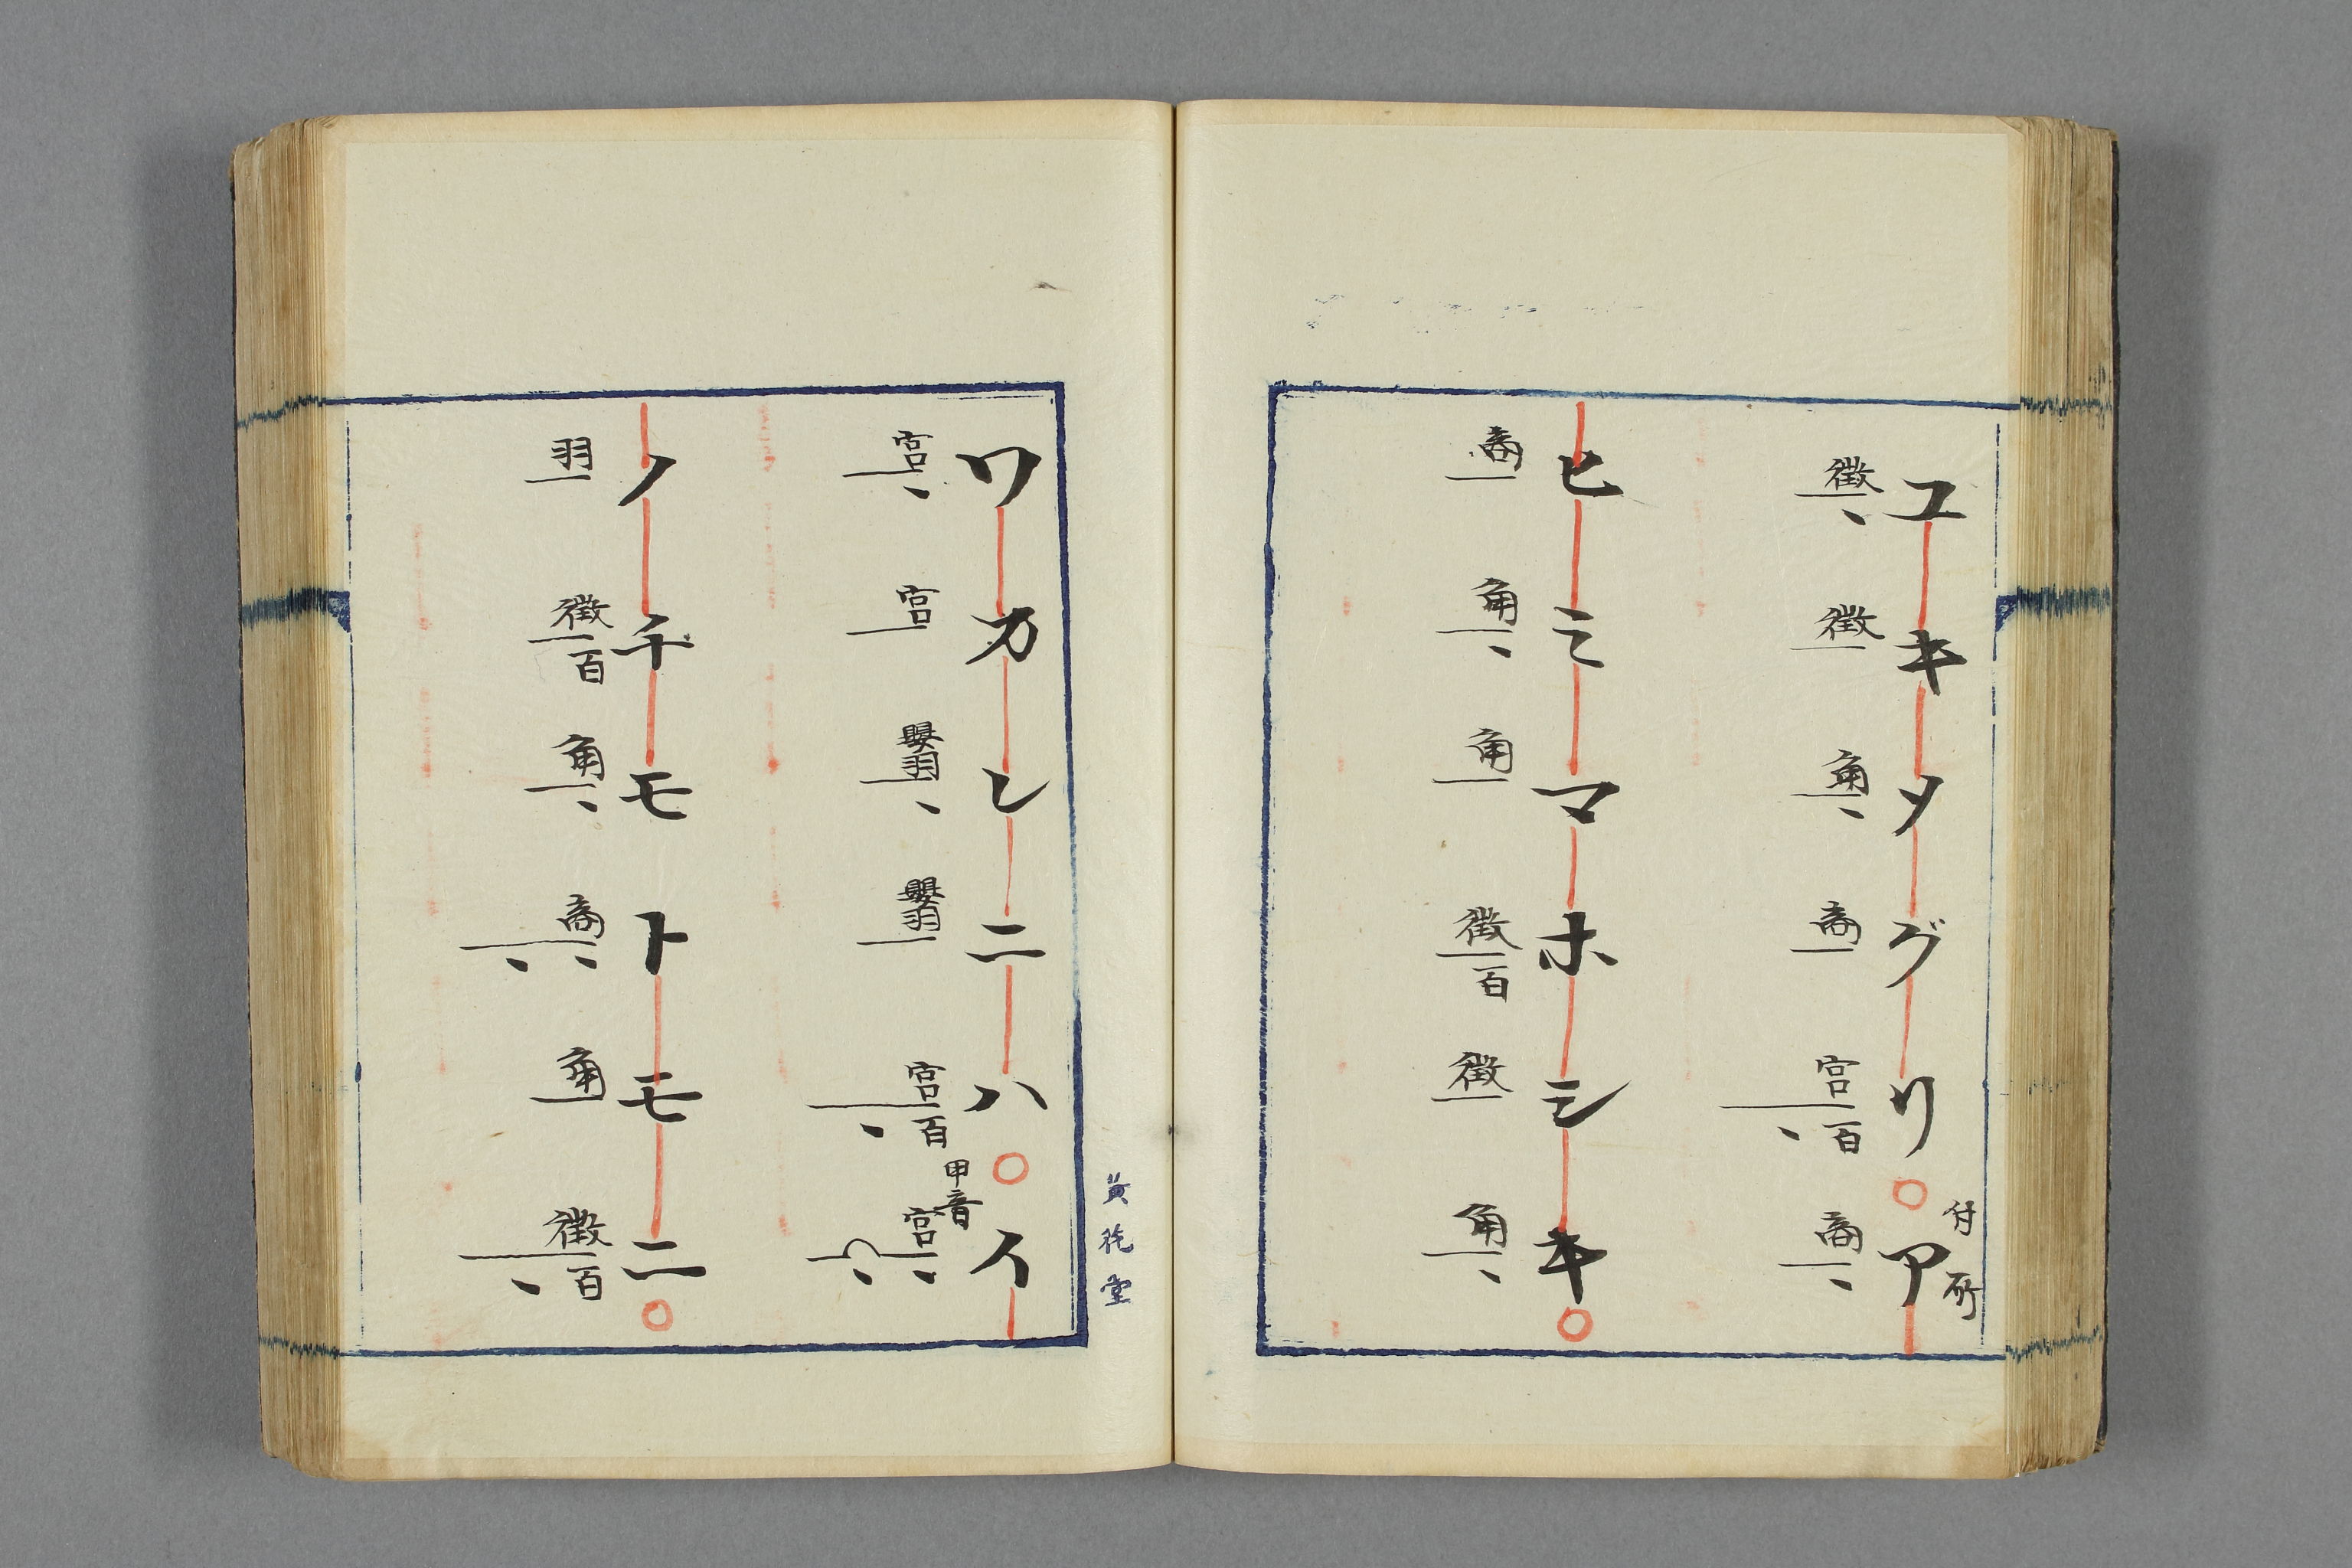 ユキタグリ○ア
付所
徴、徴角、商宮百、商、
ヒミマホシキ○
商角、角徴百徴角、
黄鐘堂
ワカシニハ○イ
甲音
宮、宮嬰羽、嬰羽宮百、宮、、
ノチモトモニ○
羽徴百角、商、、角徴百、